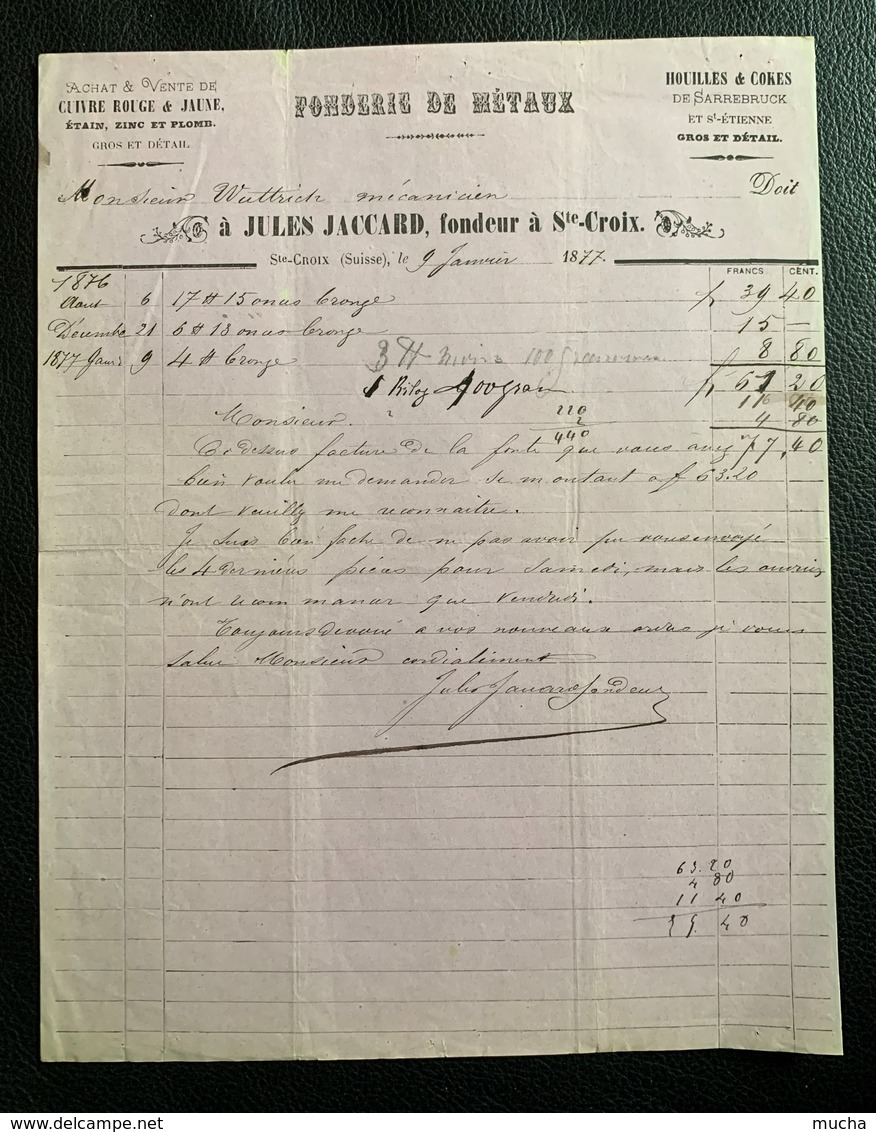 ACHAT & VENTE DE
CUIVRE ROUGE & JAUNE,
ÉTAIN, ZINC ET PLOMB.
GROS ET DÉTAIL
FONDERIE DE MÉTAUX
HOUILLES & COKES
DE SARREBRUCK
ET St-ÉTIENNE
GROS ET DÉTAIL.
Monsieur Wuttrich mécanicien Doit
à JULES JACCARD, fondeur à Ste-Croix.
Ste-Croix (Suisse), le 9 Janvier 1877.
FRANCS CENT.
1876
Aout 6 17 ℔ 15 onces bronze f 39 40
Décembre 21 6 ℔ 13 onces bronze 15 —
1877 Janv 9 4 ℔ bronze 8 80
3 ℔ moins 100 grammes
1 Kilog 400 gram f 61 20
11 40
4 80
77,40
220
2
440
Monsieur.
Ci dessus facture de la fonte que vous avez
bien voulu me demander se montant a f 63.20
dont veuillez me reconnaitre.
Je suis bien faché de ne pas avoir pu vous envoyé
les 4 dernieres pièces pour Samedi, mais les ouvriers
n'ont que Vendredi.
Toujours devoué a vos nouveaux ordres je vous
salue Monsieur cordialement
Jules Jaccard fondeur
63.20
4 80
11 40
79. 40
delcampe.net
mucha